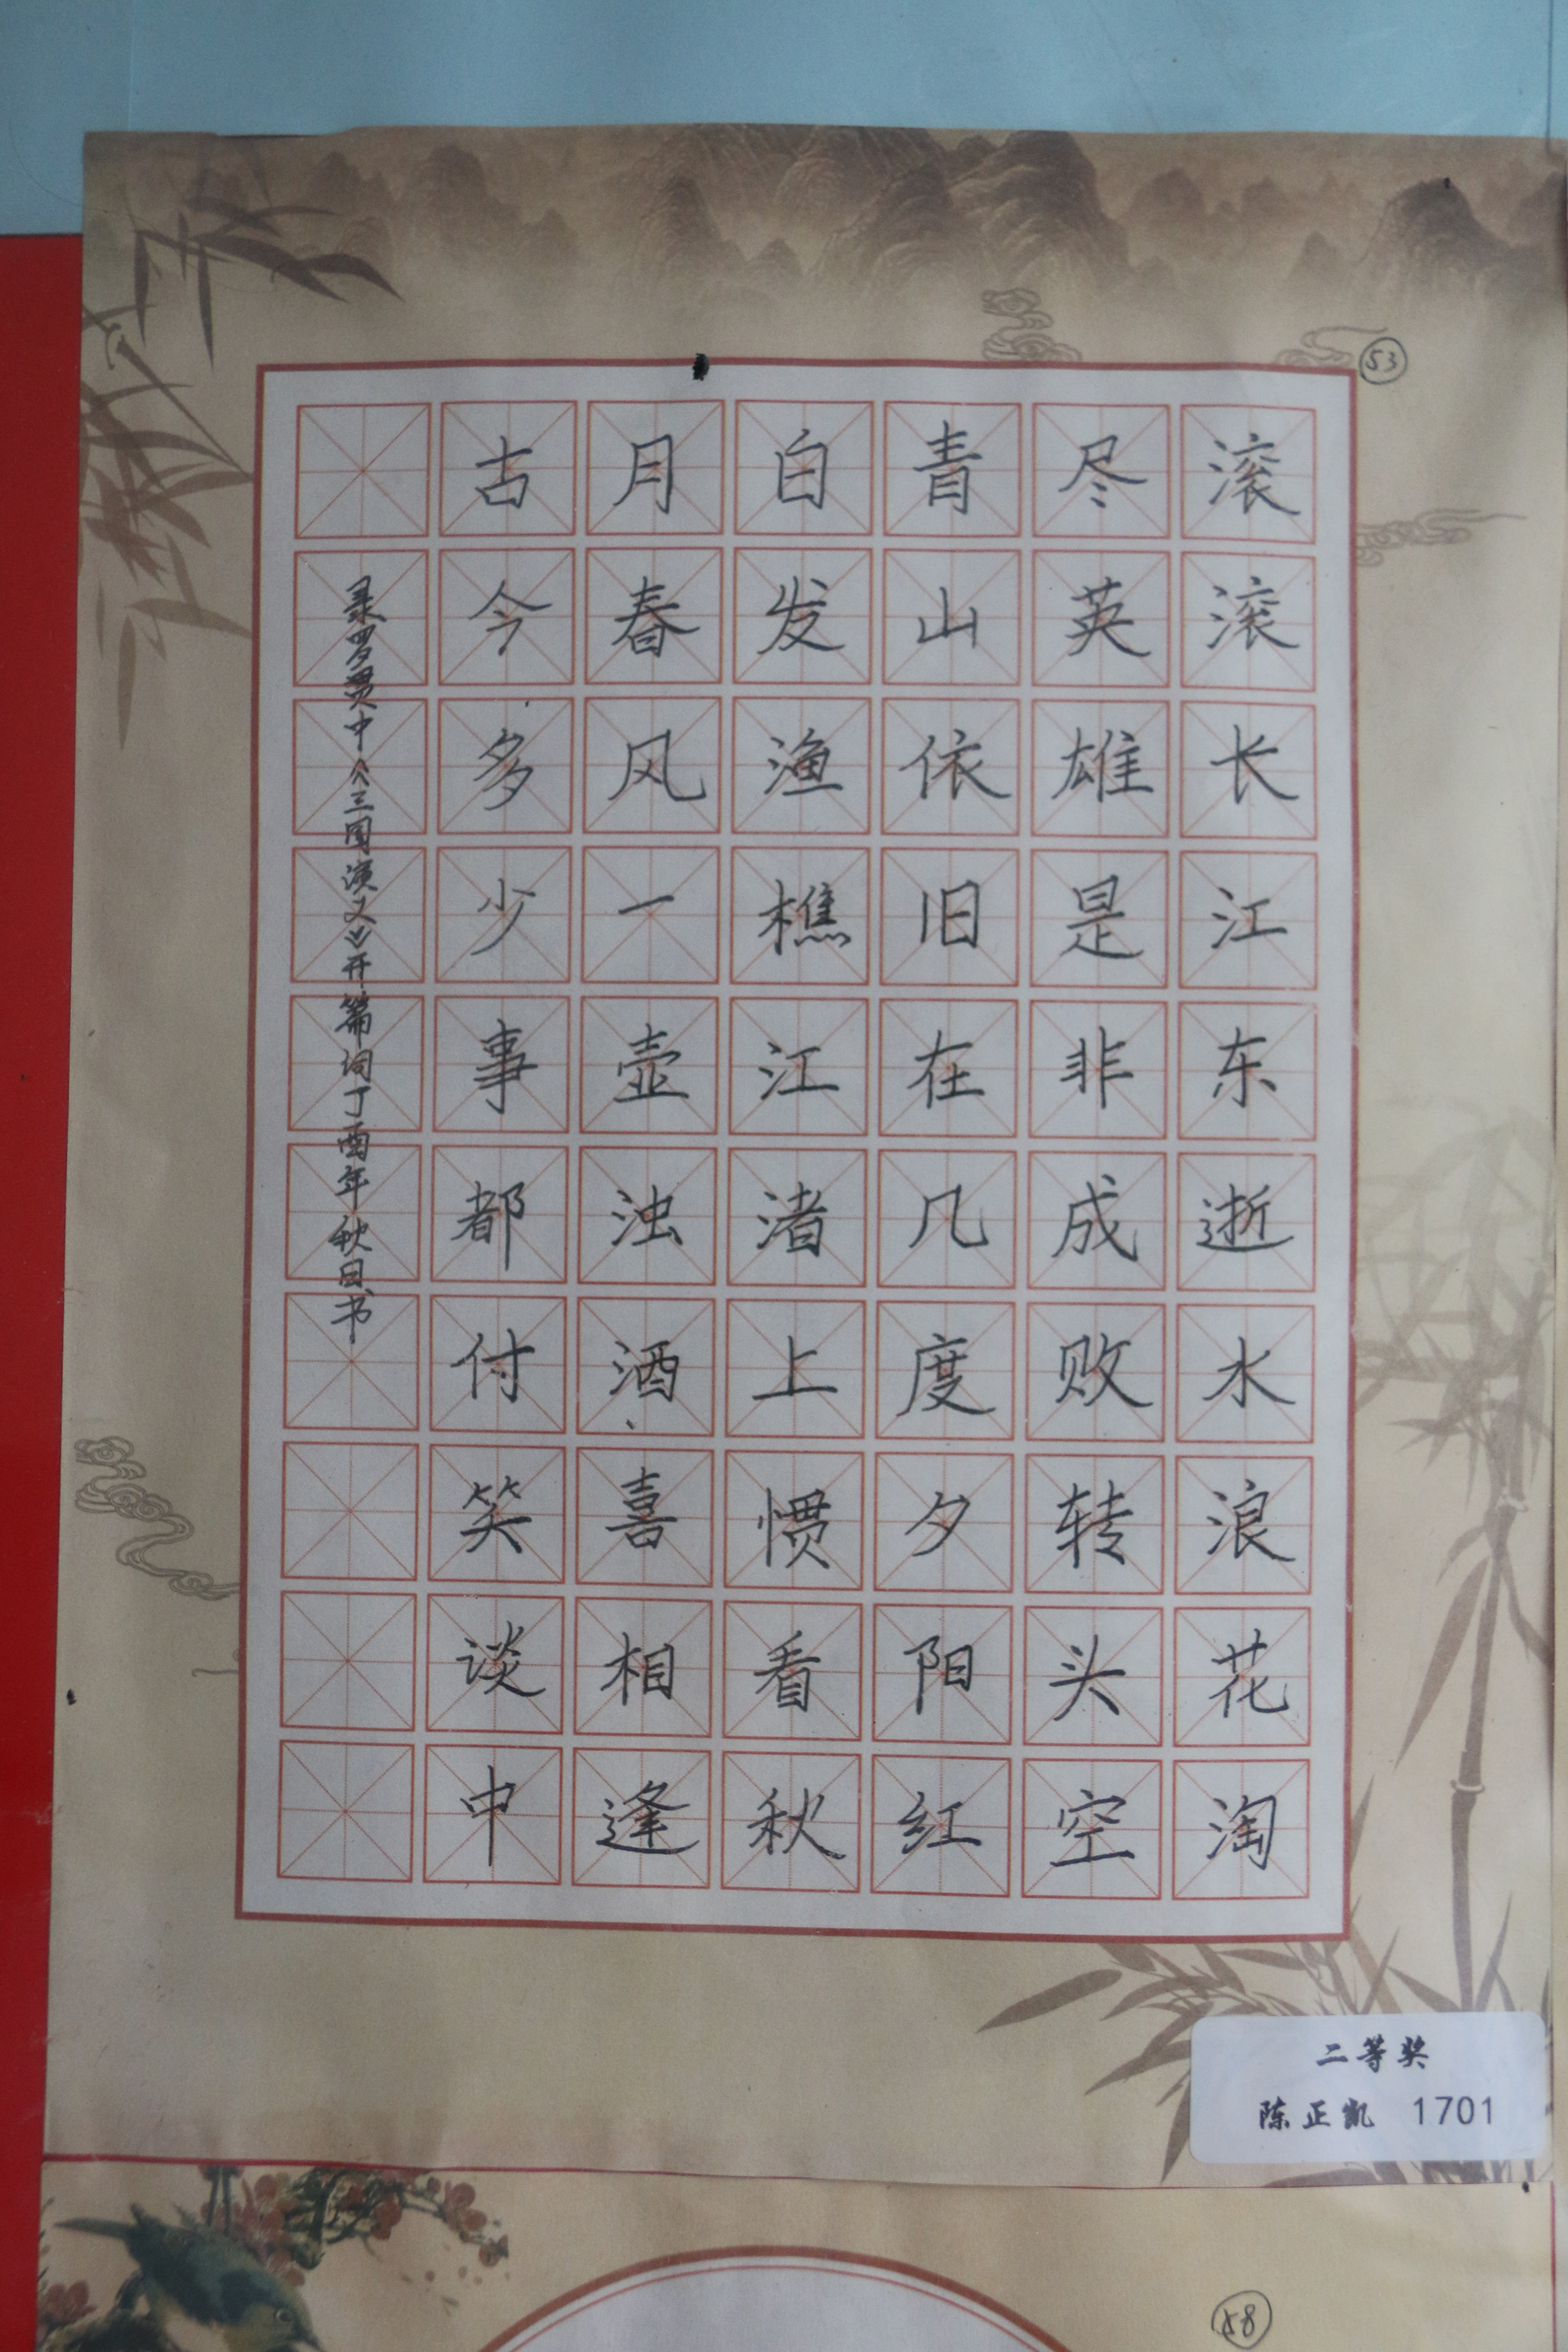 53
滚滚长江东逝水浪花淘
尽英雄是非成败转头空
青山依旧在几度夕阳红
白发渔樵江渚上惯看秋
月春风一壶浊酒喜相逢
古今多少事都付笑谈中
录罗贯中《三国演义》开篇词丁酉年秋日书
二等奖
陈正凯 1701
58